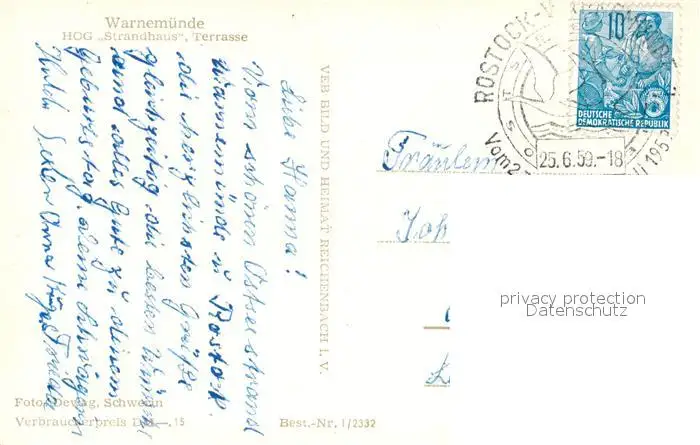 Warnemünde
HOG „Strandhaus", Terrasse
Liebe Hanna!
Vom schönen Ostseestrand
Warnemünde u. Rostock
die herzlichsten Grüße
gleichzeitig die besten Wünsche
und alles Gute zu deinem
Geburtstag. Deine Schwägerin
Anna
VEB BILD UND HEIMAT REICHENBACH I. V.
Fräulein
Joh
ROSTOCK-
Vom 2
25.6.59.-18
10
DEUTSCHE
DEMOKRATISCHE REPUBLIK
privacy protection
Datenschutz
Foto: Dewag, Schwerin
Verbraucherpreis DM —,15
Best.-Nr. I/2332